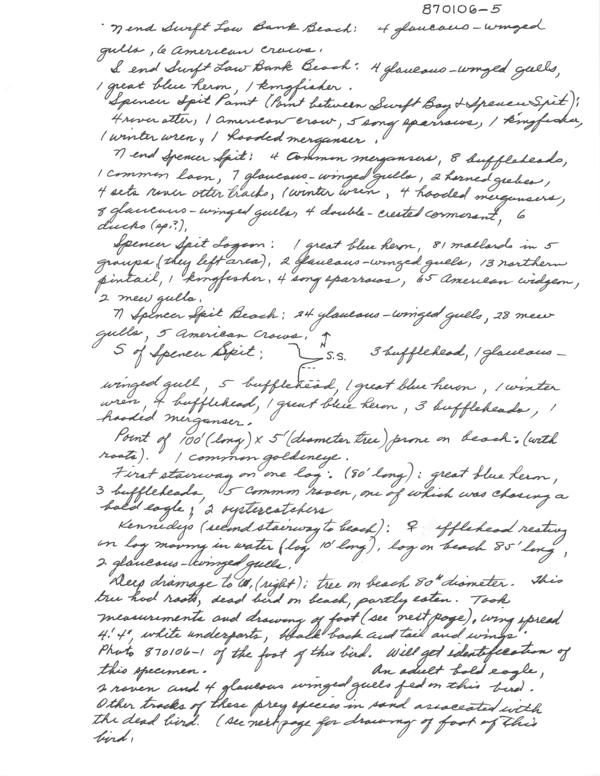 870106-5
N end Swift Low Bank Beach: 4 glaucous-winged
gulls, 6 American crows.
S end Swift Low Bank Beach: 4 glaucous-winged gulls,
1 great blue heron, 1 kingfisher.
Spencer Spit Point (Point between Swift Bay & Spencer Spit):
4 river otter, 1 American crow, 5 song sparrows, 1 kingfisher,
1 winter wren, 1 hooded merganser.
N end Spencer Spit: 4 common mergansers, 8 buffleheads,
1 common loon, 7 glaucous-winged gulls, 2 horned grebes,
4 sets river otter tracks, 1 winter wren, 4 hooded mergansers,
8 glaucous-winged gulls, 4 double-crested cormorant, 6
ducks (sp.?).
Spencer Spit Lagoon: 1 great blue heron, 81 mallards in 5
groups (they left area), 2 glaucous-winged gulls, 13 northern
pintail, 1 kingfisher, 4 song sparrows, 65 American widgeon,
2 mew gulls.
N Spencer Spit Beach: 24 glaucous-winged gulls, 28 mew
gulls, 5 American crows.
N
S of Spencer Spit: S.S. 3 bufflehead, 1 glaucous-
winged gull, 5 bufflehead, 1 great blue heron, 1 winter
wren, 4 bufflehead, 1 great blue heron, 3 buffleheads, 1
hooded merganser.
Point of 100' (long) x 5' (diameter tree) prone on beach: (with
roots). 1 common goldeneye.
First stairway on one log: (80' long): great blue heron,
3 buffleheads, 5 common raven, one of which was chasing a
bald eagle; 2 oystercatchers
Kennedys (second stairway to beach): ♀ efflehead resting
on log moving in water (log 10' long), log on beach 85' long,
2 glaucous-winged gulls.
Deep drainage to (right): tree on beach 80" diameter. This
tree had roots, dead bird on beach, partly eaten. Took
measurements and drawing of foot (see next page), wing spread
4' 4", white underparts, black back and tail and wings.
Photo 870106-1 of the foot of this bird. Will get identification of
this specimen. An adult bald eagle,
2 raven and 4 glaucous winged gulls fed on this bird.
Other tracks of these prey species in sand associated with
the dead bird. (see next page for drawing of foot of this
bird.